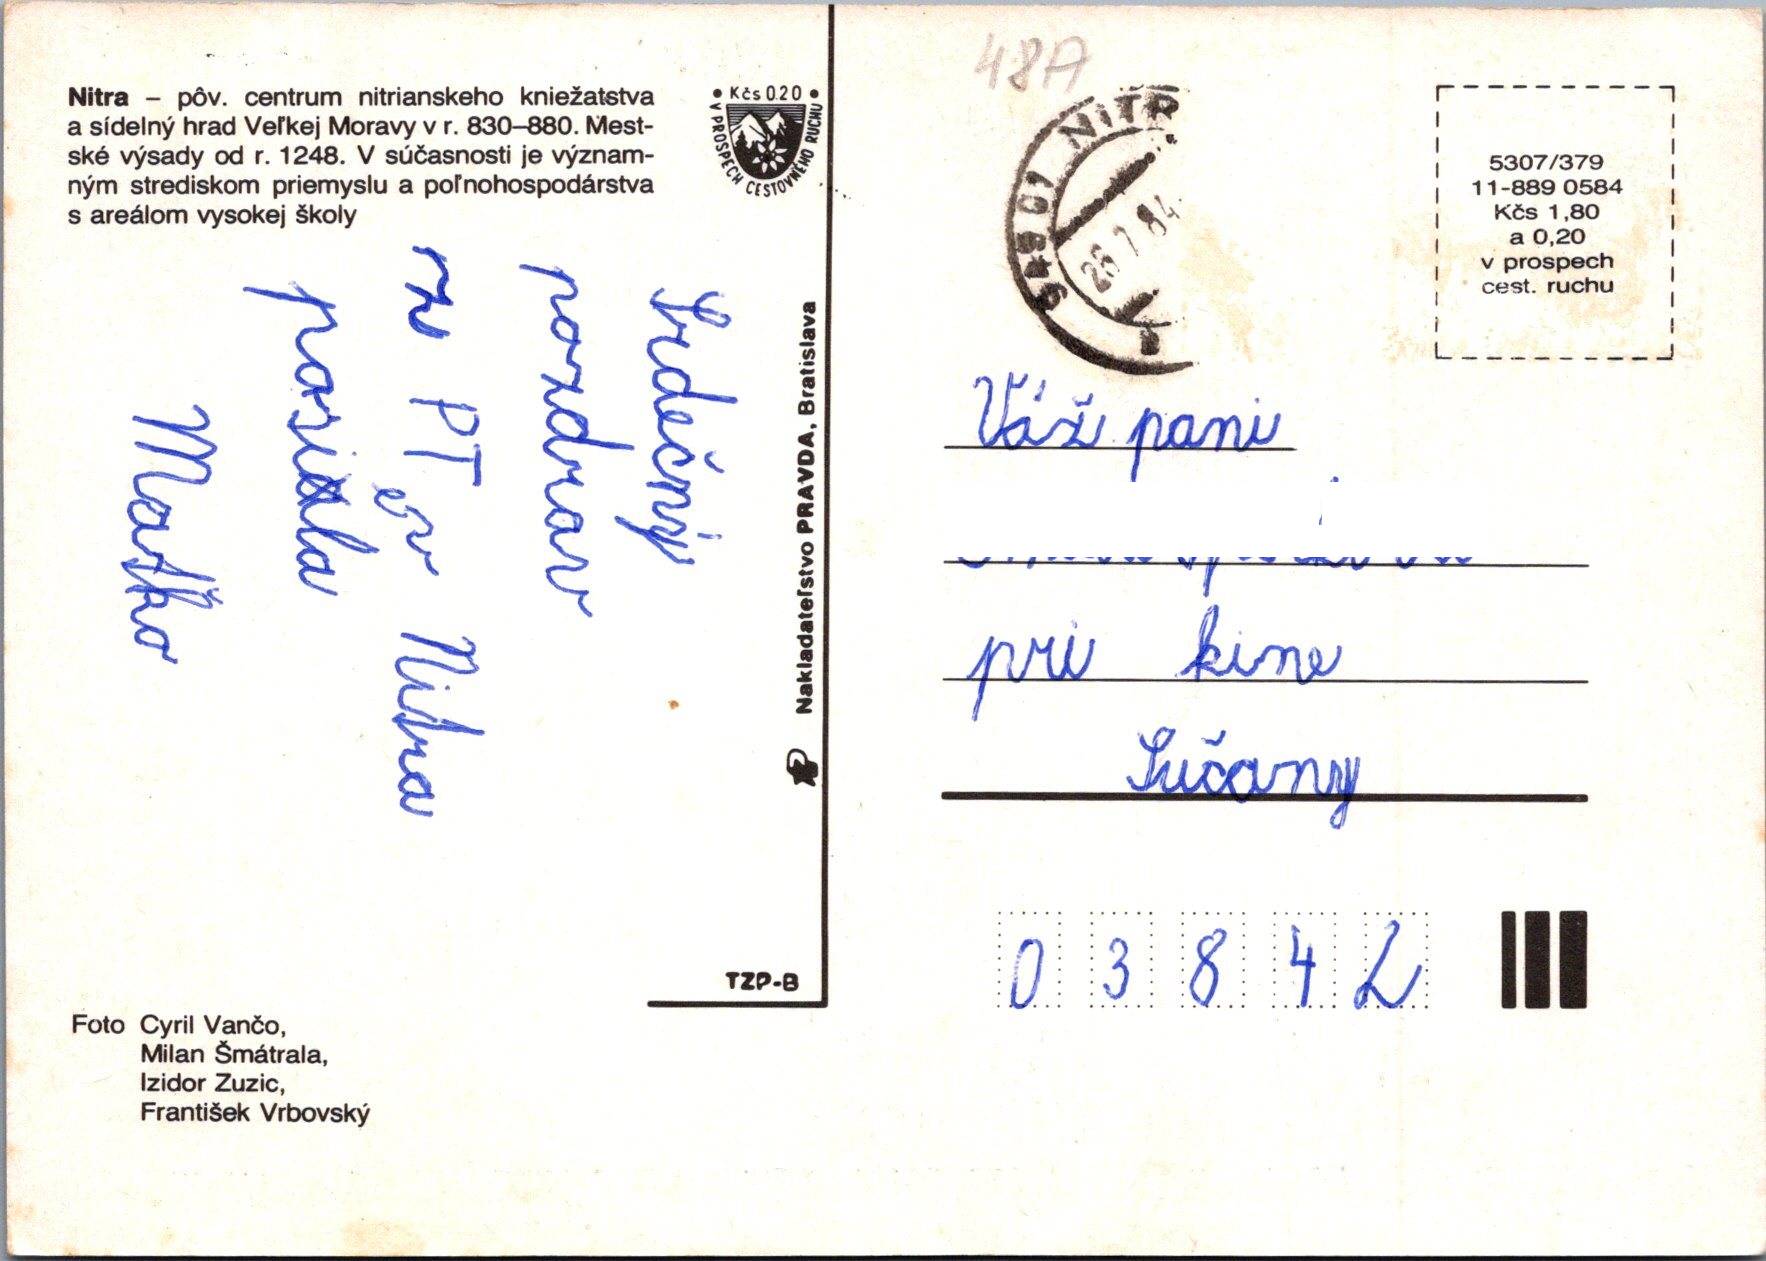 48A
Nitra – pôv. centrum nitrianskeho kniežatstva
a sídelný hrad Veľkej Moravy v r. 830–880. Mest-
ské výsady od r. 1248. V súčasnosti je význam-
ným strediskom priemyslu a poľnohospodárstva
s areálom vysokej školy
• Kčs 0.20 •
V PROSPECH CESTOVNÉHO RUCHU
Srdečný
pozdrav
z PT ev Nitra
posiela
Maťko
Nakladateľstvo PRAVDA, Bratislava
TZP-B
Foto Cyril Vančo,
Milan Šmátrala,
Izidor Zuzic,
František Vrbovský
949 01 NITR
26.7.84
5307/379
11-889 0584
Kčs 1,80
a 0,20
v prospech
cest. ruchu
Váž pani
pri kine
Sučany
03842